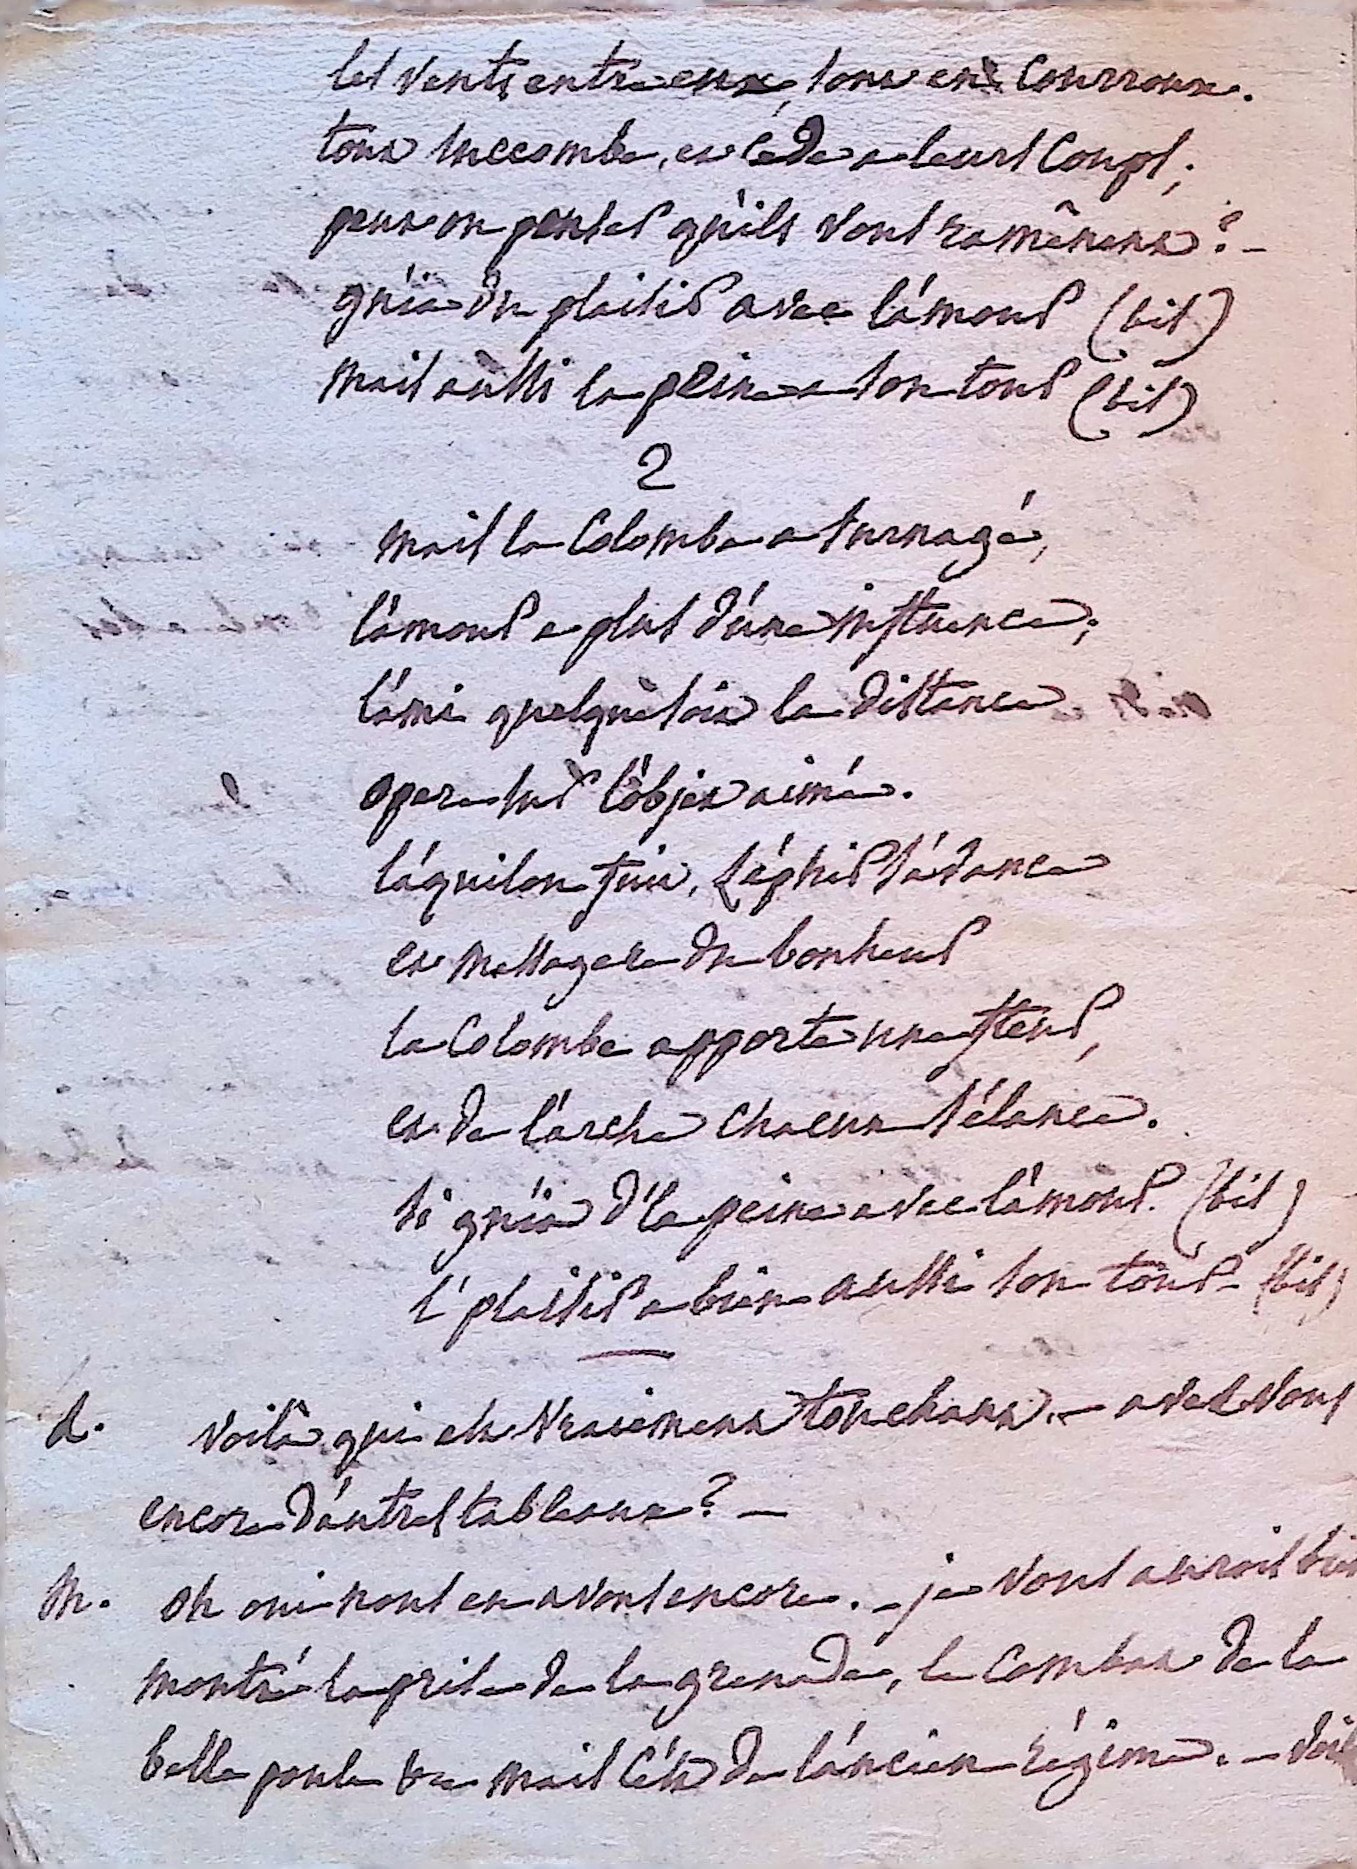 les vents entre eux sont en courroux.
tout succombe, et cède a leurs coups;
peut on penser qu'ils s'ont ramènent? -
gn'ia du plaisir avec l'amour (bis)
mais aussi la peine a son tour (bis)
2
mais la Colombe a surnagé,
l'amour a plus d'une influence;
l'ame quelquefois la distance
opere sur l'objet aimé.
l'aquilon fuit, Zéphir s'avance
et messagere du bonheur
la Colombe apporte une fleur,
et de l'arche chacun s'élance.
si gn'ia d'la peine avec l'amour. (bis)
l'plaisir a bien aussi son tour - (bis)
d. voilà qui est vraiment touchant. - avez vous
encore d'autres tableaux? -
M. oh oui nous en avons encore. - je vous aurois bien
montré la prise de la grenade, le combat de la
belle poule &c mais c'est de l'ancien régime. -